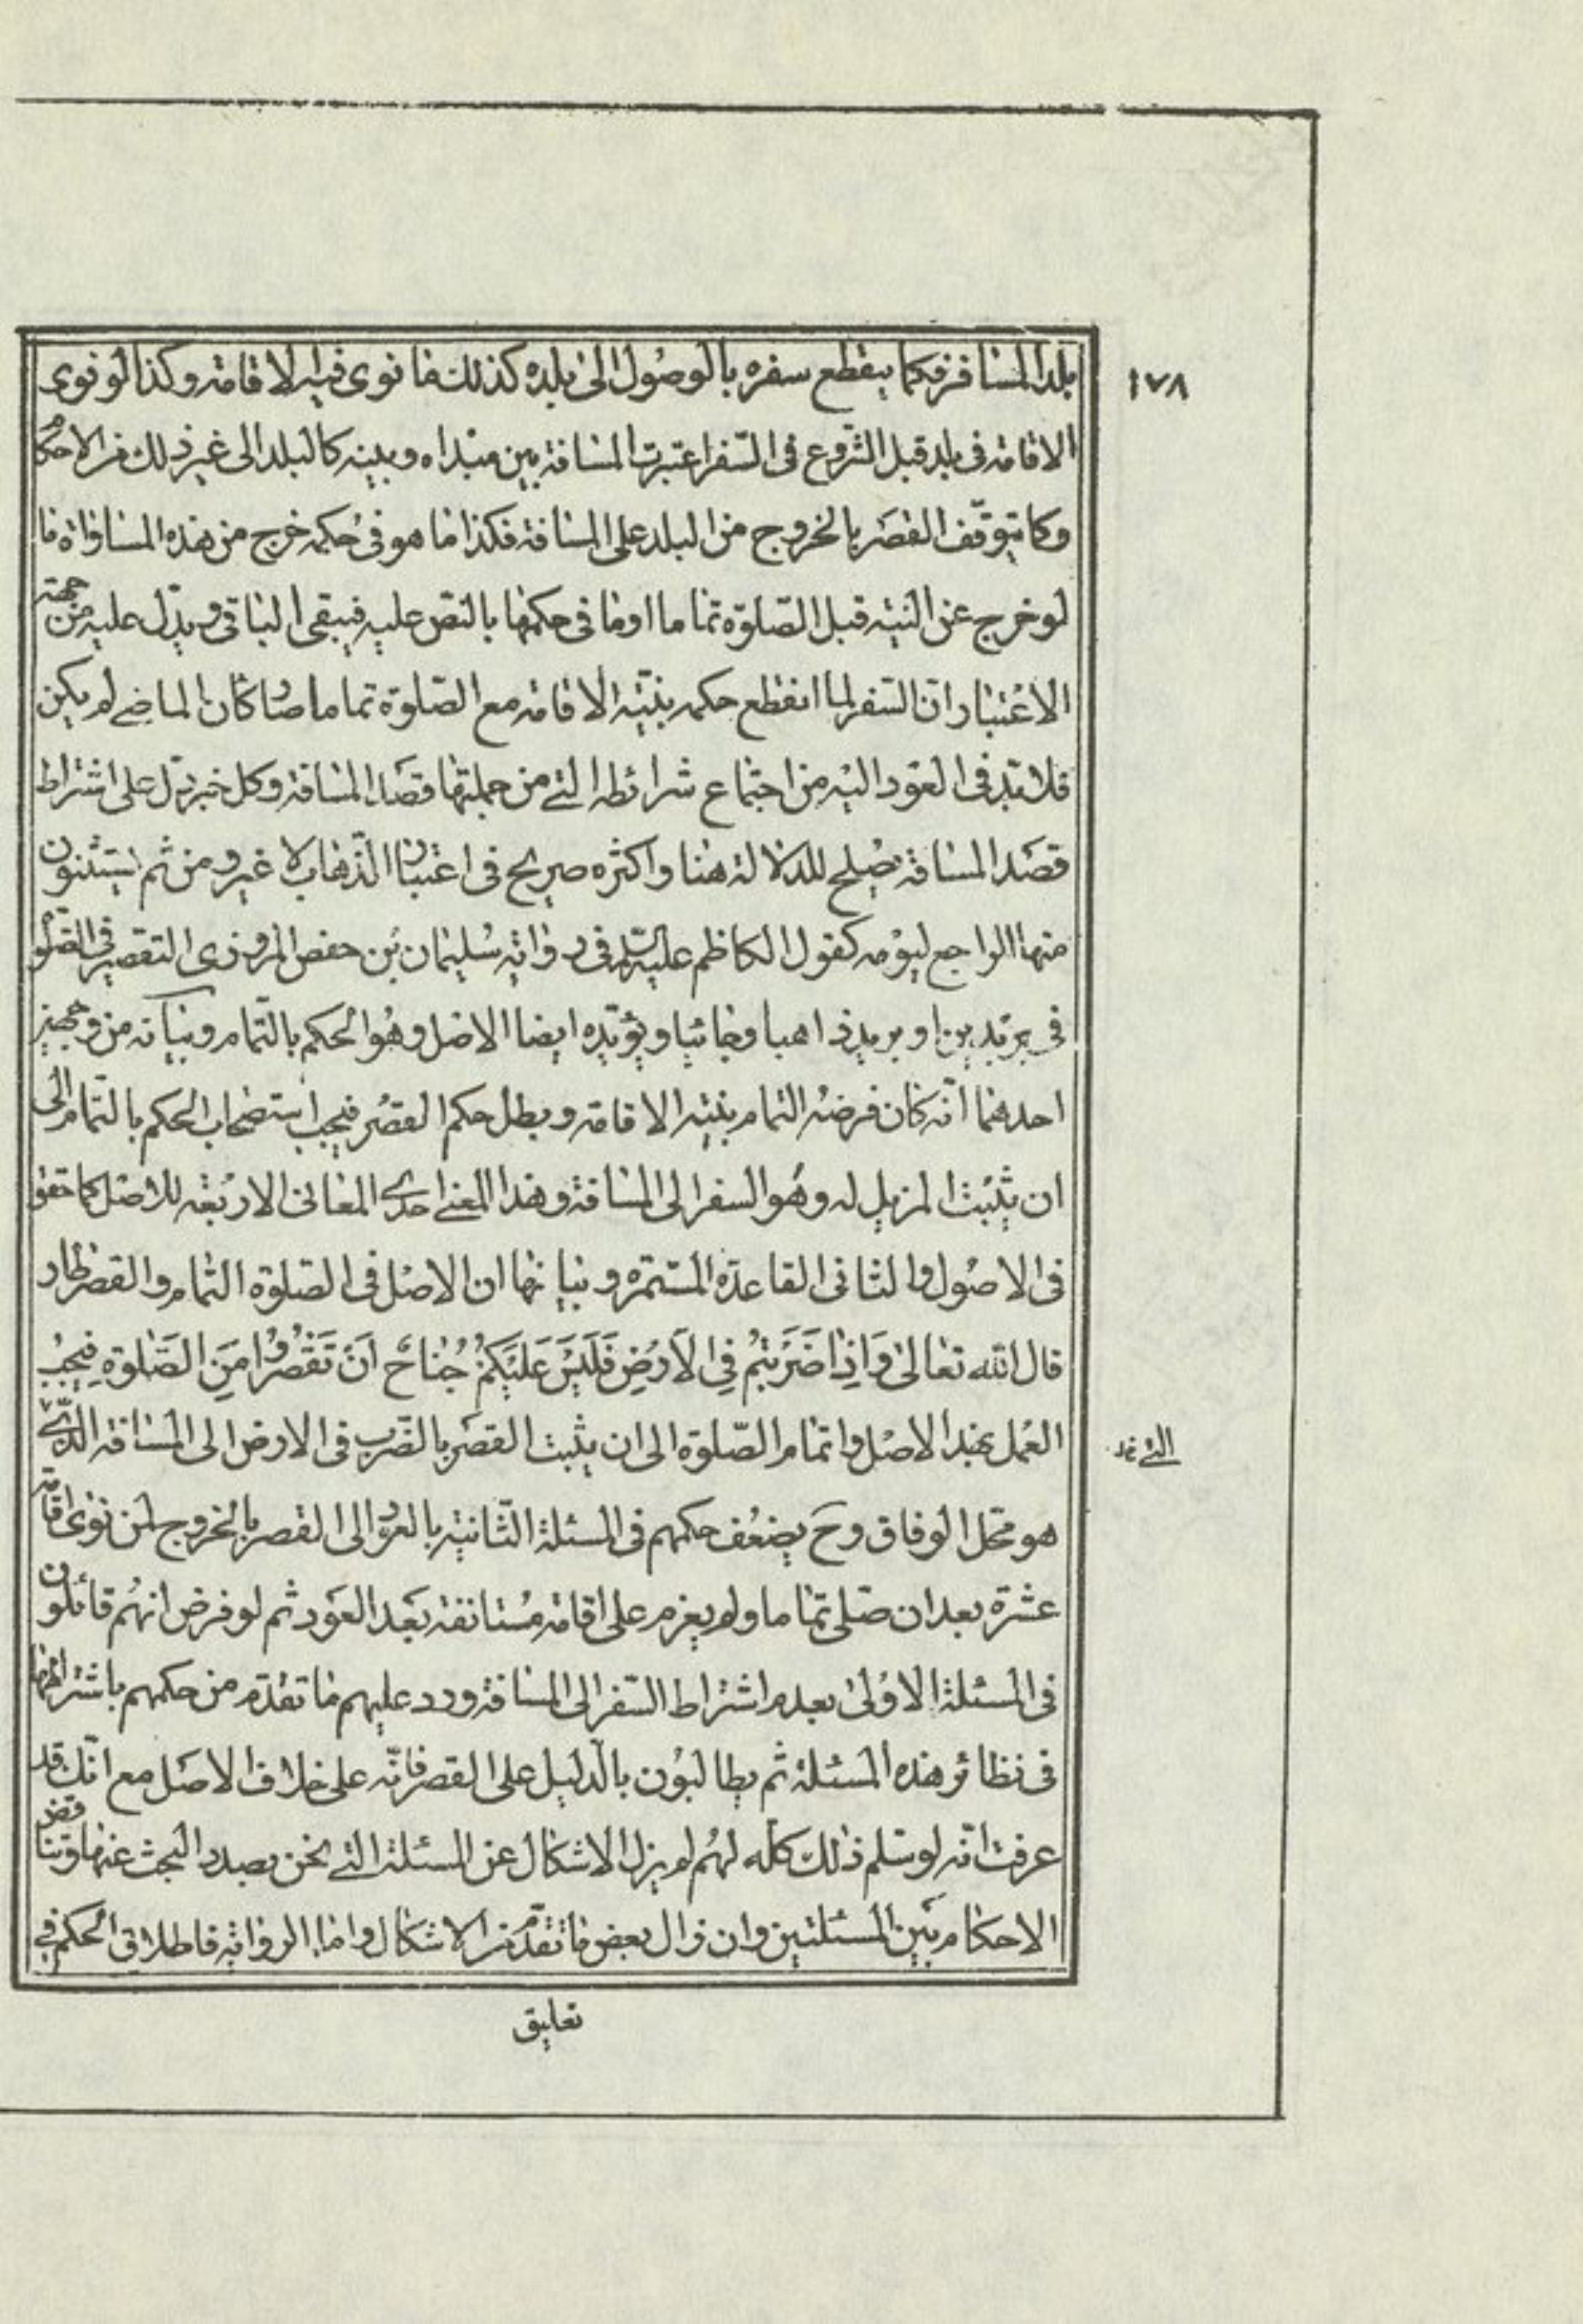 ١٧٨
بلد المسافر فكما ينقطع سفره بالوصول الى بلده كذلك ما نوى فيه الاقامة وكذا لو نوى
الاقامة فى بلد قبل الشروع فى السّفر اعتبرت المسافة بين مبداه وبينه كالبلد الى غير ذلك من الاحكام
وكما يتوقّف القصر بالخروج من البلد على المسافة فكذا ما هو فى حكمه خرج من هذه المساواة ما
لو خرج عن النية قبل الصّلوة تماما او ما فى حكمها بالنصّ عليه فيبقى الباقى ويدلّ عليه من جهة
الاعتبار انّ السّفر لما انقطع حكمه بنيّة الاقامة مع الصّلوة تماما صار كان الماضى لم يكن
فلابدّ فى العود اليه من اجتماع شرائطه التى من جملتها قصد المسافة وكل خبر دلّ على اشتراط
قصد المسافة يصلح للدلالة هنا واكثره صريح فى اعتبار الذّهاب لا غير ومن ثم يستثنون
منها الراجع ليومه كقول الكاظم عليه السلم فى رواية سليمان بن حفص المروزى التقصير فى الصّلوة
فى بريدين او بريد ذاهبا وجائيا ويؤيّده ايضا الاصل وهو الحكم بالتّمام وبيانه من وجهين
احدهما انّه كان فرضه التمام بنيّة الاقامة وبطل حكم القصر فيجب استصحاب الحكم بالتّمام الى
ان يثبت المزيل له وهو السفر الى المسافة وهذا المعنى احدى المعانى الاربعة للاصل كما حقق
فى الاصول والثانى القاعدة المستمرّة وبيانها ان الاصل فى الصّلوة التمام والقصر طار
قال الله تعالى وَاِذَا ضَرَبْتُمْ فِى الْاَرْضِ فَلَيْسَ عَلَيْكُمْ جُنَاحٌ اَنْ تَقْصُرُوْا مِنَ الصَّلٰوةِ فيجب
العمل بهذا الاصل واتمام الصّلوة الى ان يثبت القصر بالضّرب فى الارض الى المسافة الذى
التى خد
هو محل الوفاق وح يضعف حكمهم فى المسئلة الثّانية بالعود الى القصر بالخروج لمن نوى اقامة
عشرة بعد ان صلى تماما ولم يعزم على اقامة مستانفة بعد العود ثم لو فرض انهم قائلون
فى المسئلة الاولى بعدم اشتراط السّفر الى المسافة ورد عليهم ما تقدّم من حكمهم باشتراطها
فى نظائر هذه المسئلة ثم يطالبون بالدليل على القصر فانّه على خلاف الاصل مع انّك قد
عرفت انّه لو سلم ذلك كلّه لهم لم يزل الاشكال عن المسئلة التى نحن بصدد البحث عنها وتناقض
الاحكام بين المسئلتين وان زال بعض ما تقدّم من الاشكال واما الرواية فاطلاق الحكم فى
تعليق